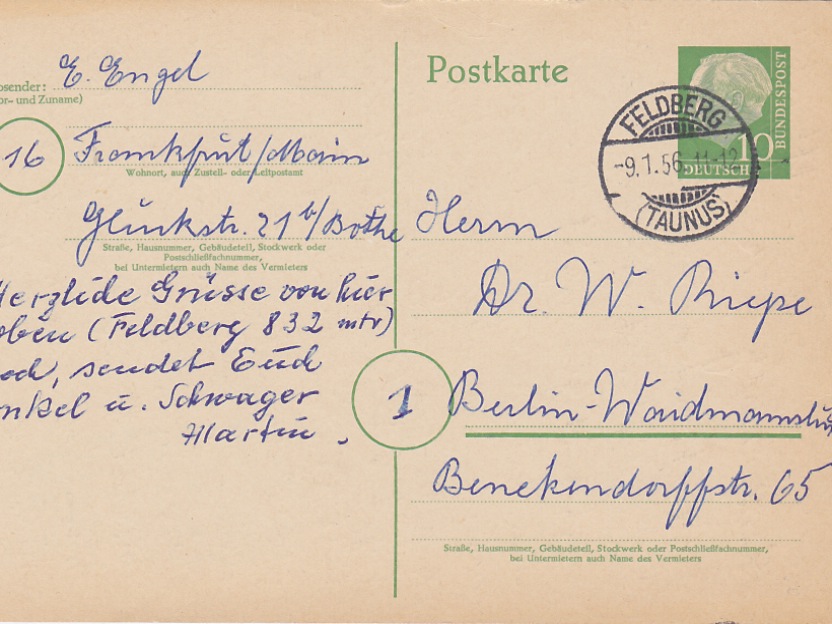 Absender: E. Engel
Vor- und Zuname)
16 Frankfurt/Main
Wohnort, auch Zustell- oder Leitpostamt
Glückstr. 21 b/Bothe
Straße, Hausnummer, Gebäudeteil, Stockwerk oder
Postschließfachnummer,
bei Untermietern auch Name des Vermieters
Herzliche Grüsse von hier
oben (Feldberg 832 mtr)
hoch, sendet Euch
Onkel u. Schwager
Martin.
Postkarte
10
DEUTSCHE
BUNDESPOST
FELDBERG
-9.1.56 11-12
(TAUNUS)
Herrn
Dr. W. Riepe
1 Berlin-Waidmannslust
Benekendorffstr. 65
Straße, Hausnummer, Gebäudeteil, Stockwerk oder Postschließfachnummer,
bei Untermietern auch Name des Vermieters